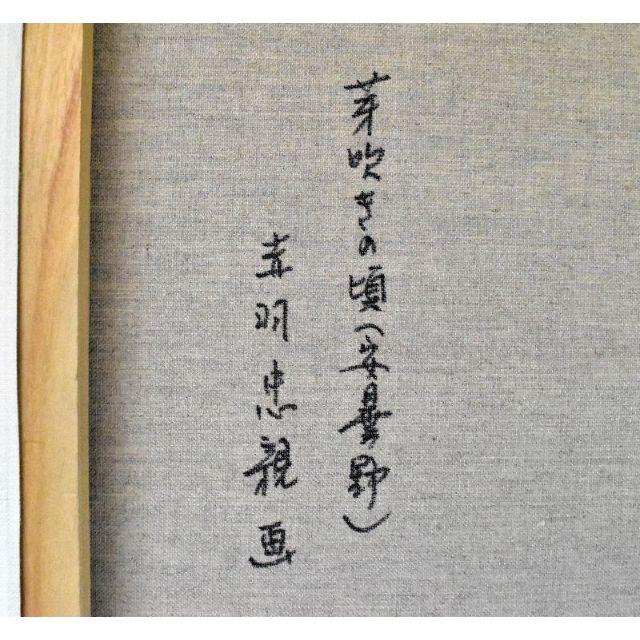 芽吹きの頃(安曇野)
赤羽忠親画